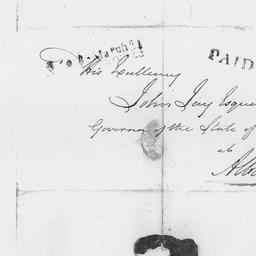 March 21
PAID
His Excellency
John Jay Esque
Governor of the State of
at
Alb